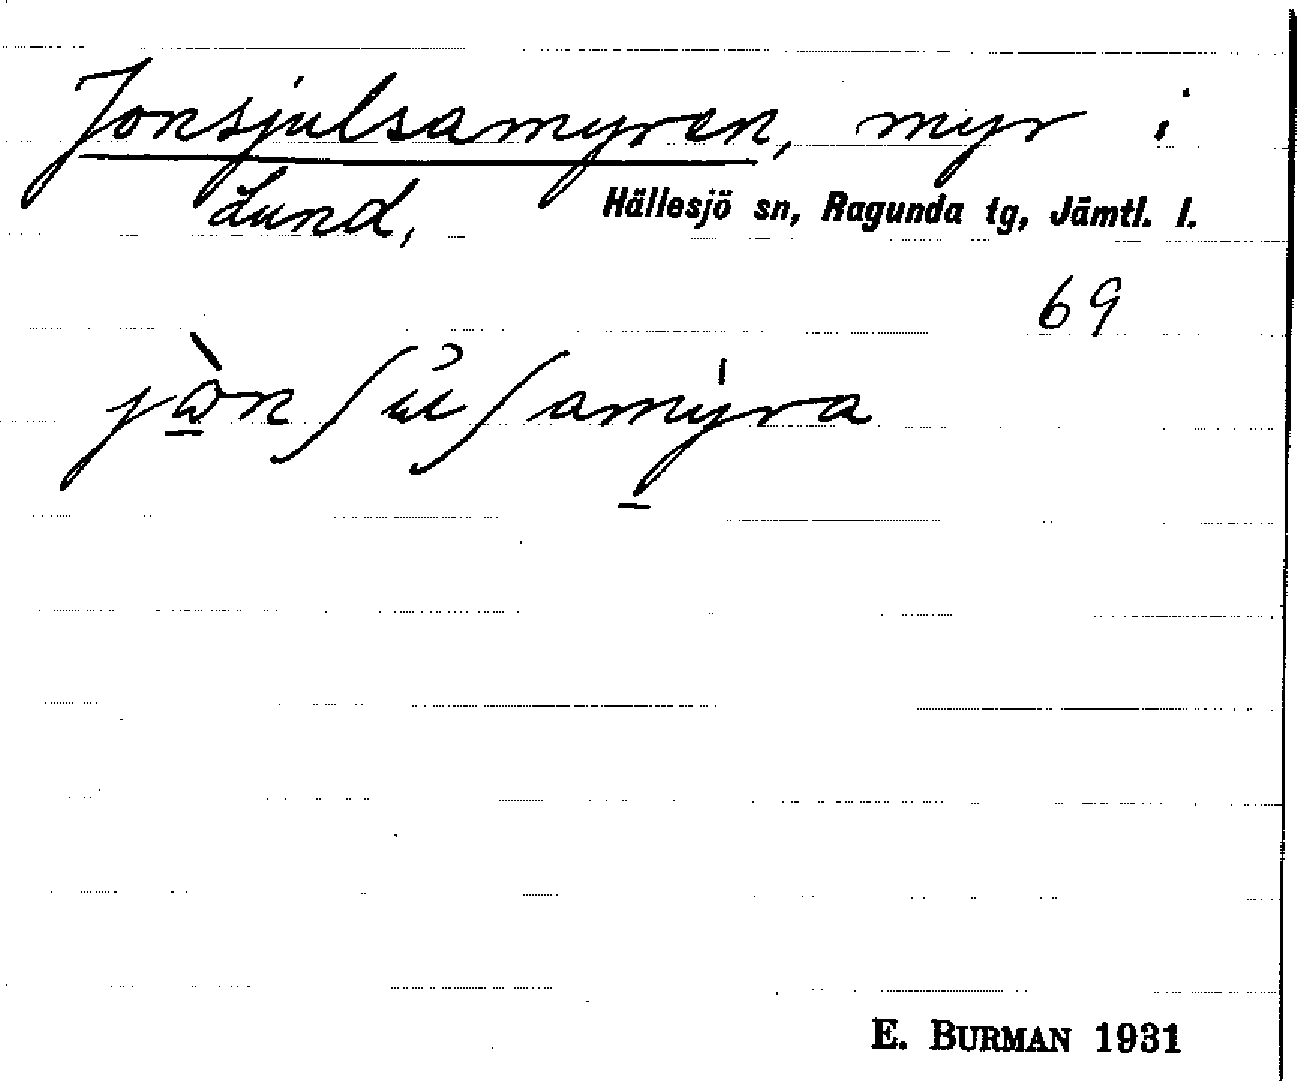 Jonsjulsamyren, myr i
Lund, Hällesjö sn, Ragunda tg, Jämtl. l.
69
E. BURMAN 1931